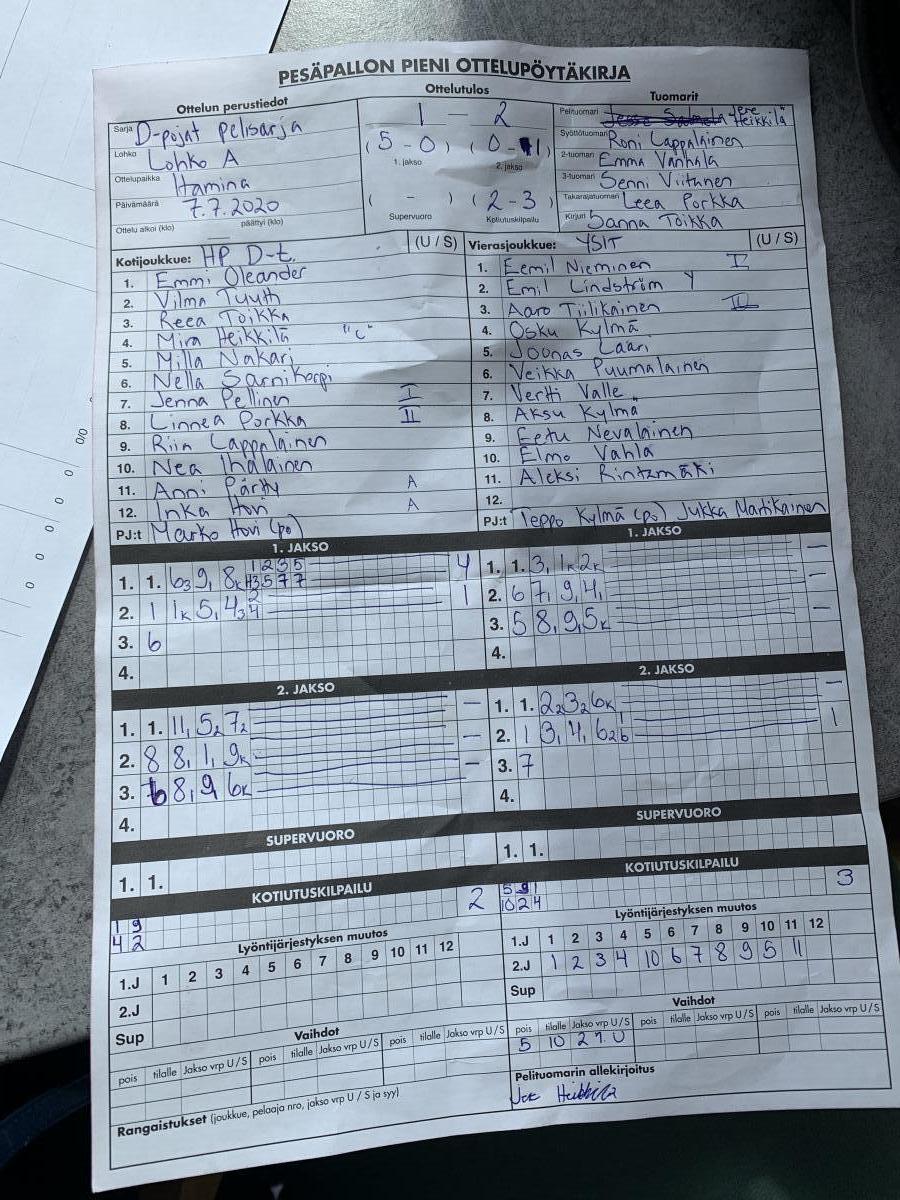 PESÄPALLON PIENI OTTELUPÖYTÄKIRJA
Ottelun perustiedot
Sarja D-pojat pelisarja
Lohko Lohko A
Ottelupaikka Hamina
Päivämäärä 7.7.2020
Ottelu alkoi (klo) päättyi (klo)
Ottelutulos
1 - 2
(5 - 0) (0 - 1)
1. jakso 2. jakso
( - ) (2 - 3)
Supervuoro Kotiutuskilpailu
Tuomarit
Pelituomari Jere Heikkilä
Syöttötuomari Roni Lappalainen
2-tuomari Emma Vanhala
3-tuomari Senni Viitanen
Takarajatuomari Leea Porkka
Kirjuri Sanna Toikka
Kotijoukkue: HP D-t. (U / S)
1. Emmi Oleander
2. Vilma Tuuth
3. Reea Toikka
4. Mira Heikkilä "C"
5. Milla Nakari
6. Nella Sarnikorpi
7. Jenna Pellinen I
8. Linnea Porkka II
9. Riin Lappalainen
10. Nea Ihalainen
11. Anni Pärtty A
12. Inka Hovi A
PJ:t Marko Hovi (po)
Vierasjoukkue: YSIT (U / S)
1. Eemil Nieminen V
2. Emil Lindström Y
3. Aaro Tiilikainen
4. Osku Kylmä
5. Joonas Laari
6. Veikka Puumalainen
7. Vertti Valle
8. Aksu Kylmä
9. Eetu Nevalainen
10. Elmo Vahla
11. Aleksi Rintamäki
12.
PJ:t Teppo Kylmä (po) Jukka Martikainen
1. JAKSO
1. 1. 63 9, 8k 4
2. 1 1k 5, 43 1
3. 6
4.
1. JAKSO
1. 1. 3, 1k 2k -
2. 6 7, 9, 4, -
3. 5 8, 9, 5k -
4.
2. JAKSO
1. 1. 11, 52 72 -
2. 8 8, 1, 9k -
3. 6 8, 9 6k -
4.
2. JAKSO
1. 1. 22 32 6k -
2. 1 3, 4, 62 1
3. 7
4.
SUPERVUORO
1. 1.
SUPERVUORO
1. 1.
KOTIUTUSKILPAILU
1 9 2
4 2
KOTIUTUSKILPAILU
5 9 1 3
10 2 4
Lyöntijärjestyksen muutos
1.J 1 2 3 4 5 6 7 8 9 10 11 12
2.J
Sup
Lyöntijärjestyksen muutos
1.J 1 2 3 4 5 6 7 8 9 10 11 12
2.J 1 2 3 4 10 6 7 8 9 5 11
Sup
Vaihdot
pois tilalle Jakso vrp U / S pois tilalle Jakso vrp U / S pois tilalle Jakso vrp U / S
Vaihdot
pois tilalle Jakso vrp U / S pois tilalle Jakso vrp U / S pois tilalle Jakso vrp U / S
5 10 2 1. U
Rangaistukset (joukkue, pelaaja nro, jakso vrp U / S ja syy)
Pelituomarin allekirjoitus